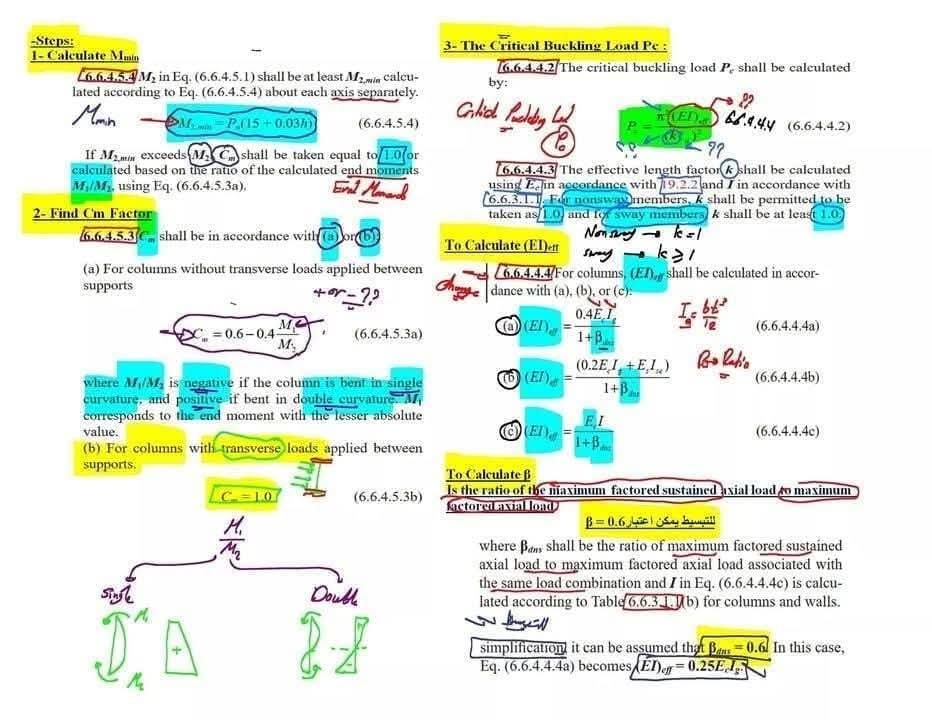 -Steps:
1- Calculate Mmin
6.6.4.5.4 M2 in Eq. (6.6.4.5.1) shall be at least M2,min calcu-
lated according to Eq. (6.6.4.5.4) about each axis separately.
Mmin
M2,min = Pu(15 + 0.03h) (6.6.4.5.4)
If M2,min exceeds M2, Cm shall be taken equal to 1.0 or
calculated based on the ratio of the calculated end moments
M1/M2, using Eq. (6.6.4.5.3a).
End Moments
2- Find Cm Factor
6.6.4.5.3 Cm shall be in accordance with (a) or (b):
(a) For columns without transverse loads applied between
supports
+ or - ??
Cm = 0.6 – 0.4 M1/M2 (6.6.4.5.3a)
where M1/M2 is negative if the column is bent in single
curvature, and positive if bent in double curvature. M1
corresponds to the end moment with the lesser absolute
value.
(b) For columns with transverse loads applied between
supports.
Cm = 1.0 (6.6.4.5.3b)
M1/M2
Single Double
M1
+
M2
3- The Critical Buckling Load Pc :
6.6.4.4.2 The critical buckling load Pc shall be calculated
by:
Critical Buckling Load
Pc
Pc = π²(EI)eff/(kℓu)² (6.6.4.4.2)
??
6.6.4.4.4
?? ??
6.6.4.4.3 The effective length factor k shall be calculated
using Ec in accordance with 19.2.2 and I in accordance with
6.6.3.1.1. For nonsway members, k shall be permitted to be
taken as 1.0, and for sway members, k shall be at least 1.0.
Nonsway → k = 1
sway → k ≥ 1
To Calculate (EI)eff
6.6.4.4.4 For columns, (EI)eff shall be calculated in accor-
dance with (a), (b), or (c):
(a) (EI)eff = 0.4EcIg/1+βdns (6.6.4.4.4a)
Ig = bt³/12
(b) (EI)eff = (0.2EcIg + EsIse)/1+βdns (6.6.4.4.4b)
β → Ratio
(c) (EI)eff = EcI/1+βdns (6.6.4.4.4c)
To Calculate β
Is the ratio of the maximum factored sustained axial load to maximum
factored axial load
للتبسيط يمكن اعتبار β = 0.6
where βdns shall be the ratio of maximum factored sustained
axial load to maximum factored axial load associated with
the same load combination and I in Eq. (6.6.4.4.4c) is calcu-
lated according to Table 6.6.3.1.1(b) for columns and walls.
simplification, it can be assumed that βdns = 0.6. In this case,
Eq. (6.6.4.4.4a) becomes (EI)eff = 0.25EcIg.